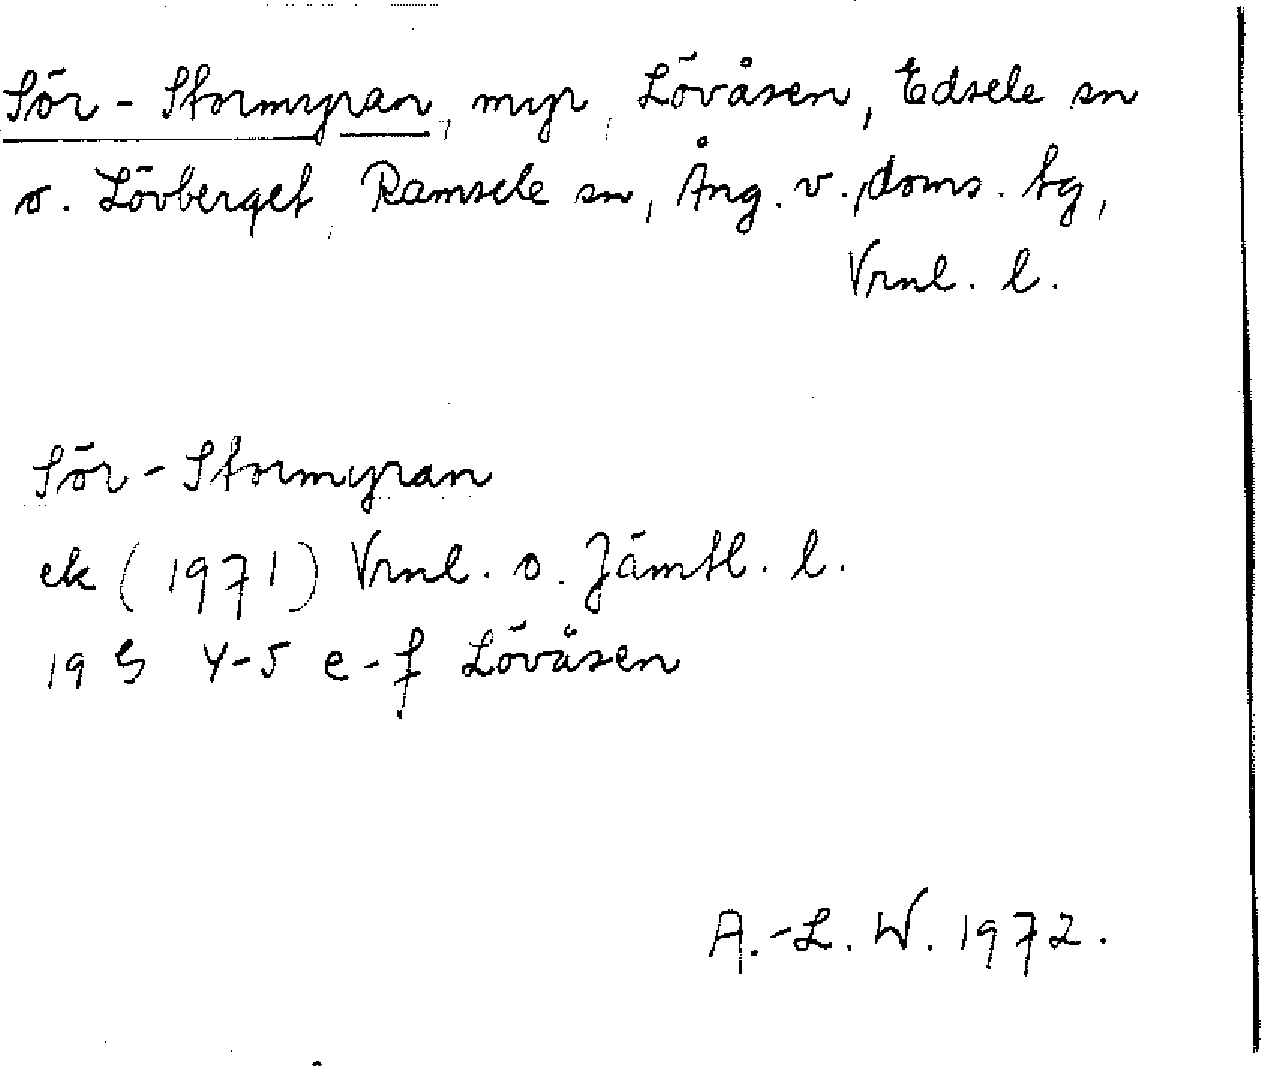 Sör-Stormyran, myr, Lövåsen, Edsele sn
o. Lövberget, Ramsele sn, Ång. v. doms. tg,
Vrnl. l.
Sör-Stormyran
ek (1971) Vrnl. o. Jämtl. l.
19 G 4-5 e-f Lövåsen
A.-L. W. 1972.